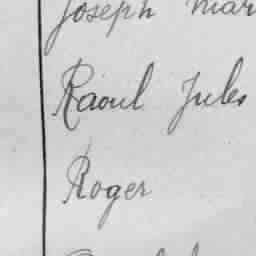 Joseph Mar
Raoul Jules
Roger